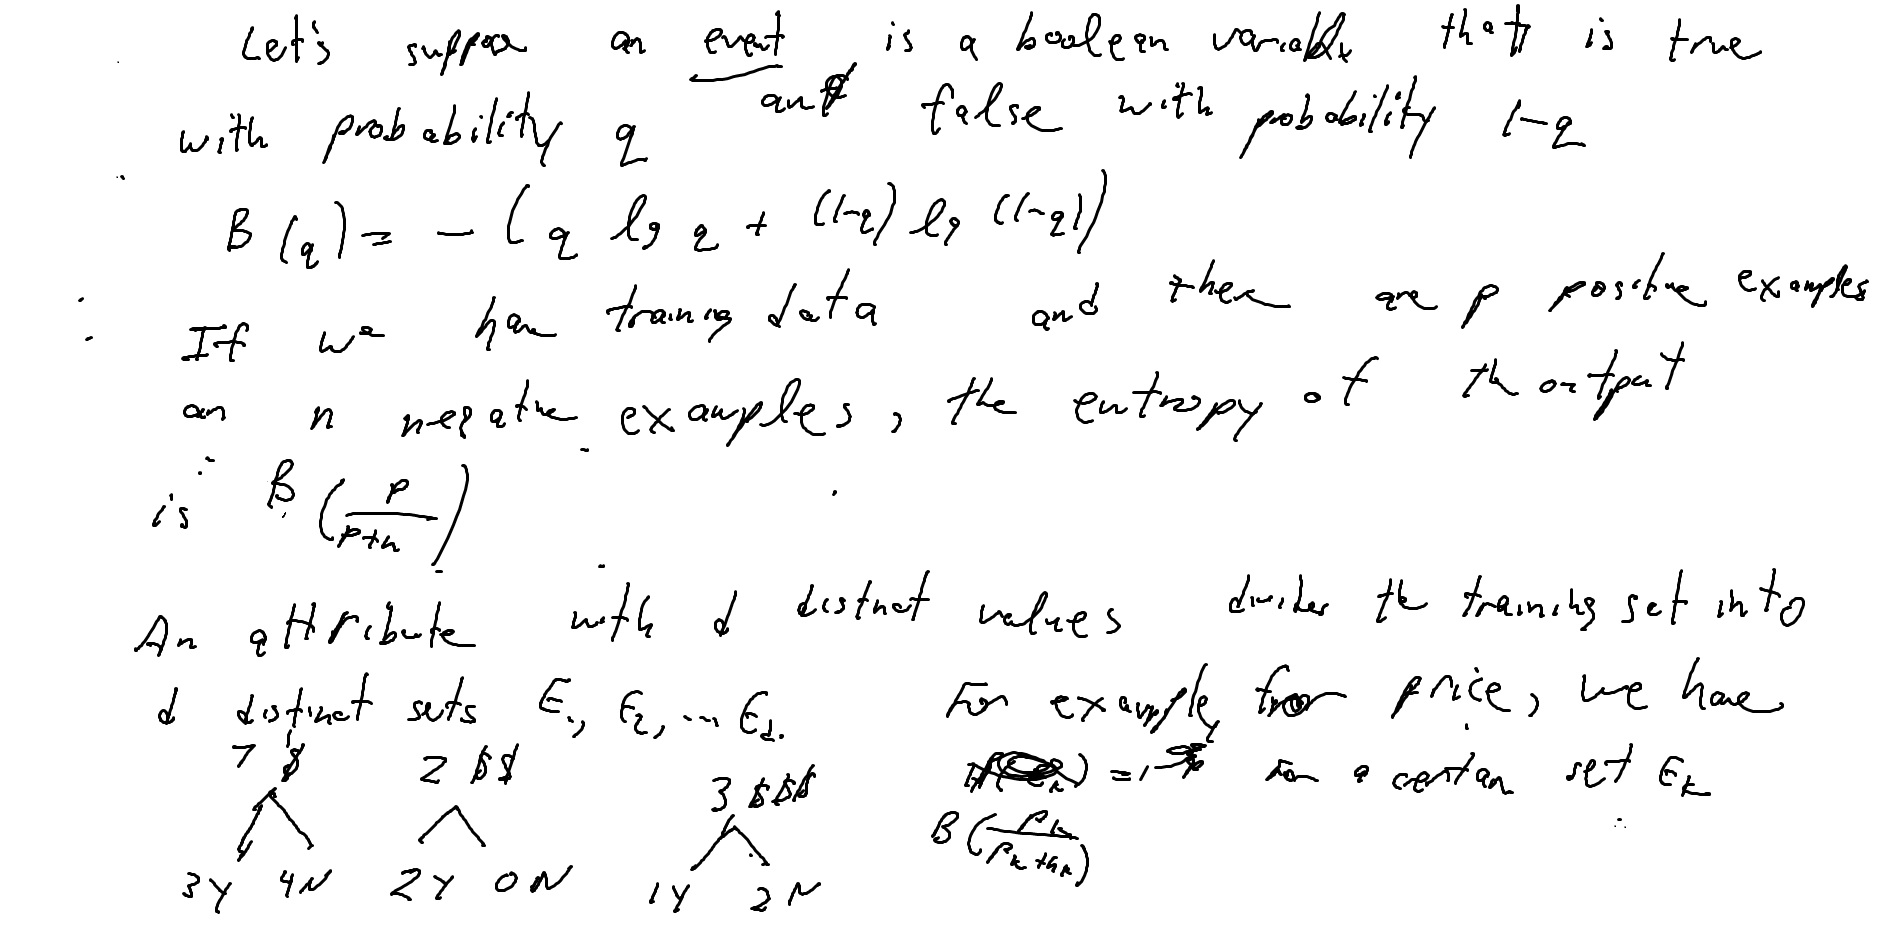 Let's suppose an event is a boolean variable that is true
with probability q and false with probability 1-q
B(q) = - (q lg q + (1-q) lg (1-q))
If we have training data and there are p positive examples
an n negative examples, the entropy of the output
is B(p/(p+n))
An attribute with d distinct values divides the training set into
d distinct sets E1, E2, ... Ed. For example, from price, we have
7 $ 2 $$ 3 $$$ For a certain set Ek
3Y 4N 2Y 0N 1Y 2N B(pk/(pk+nk))